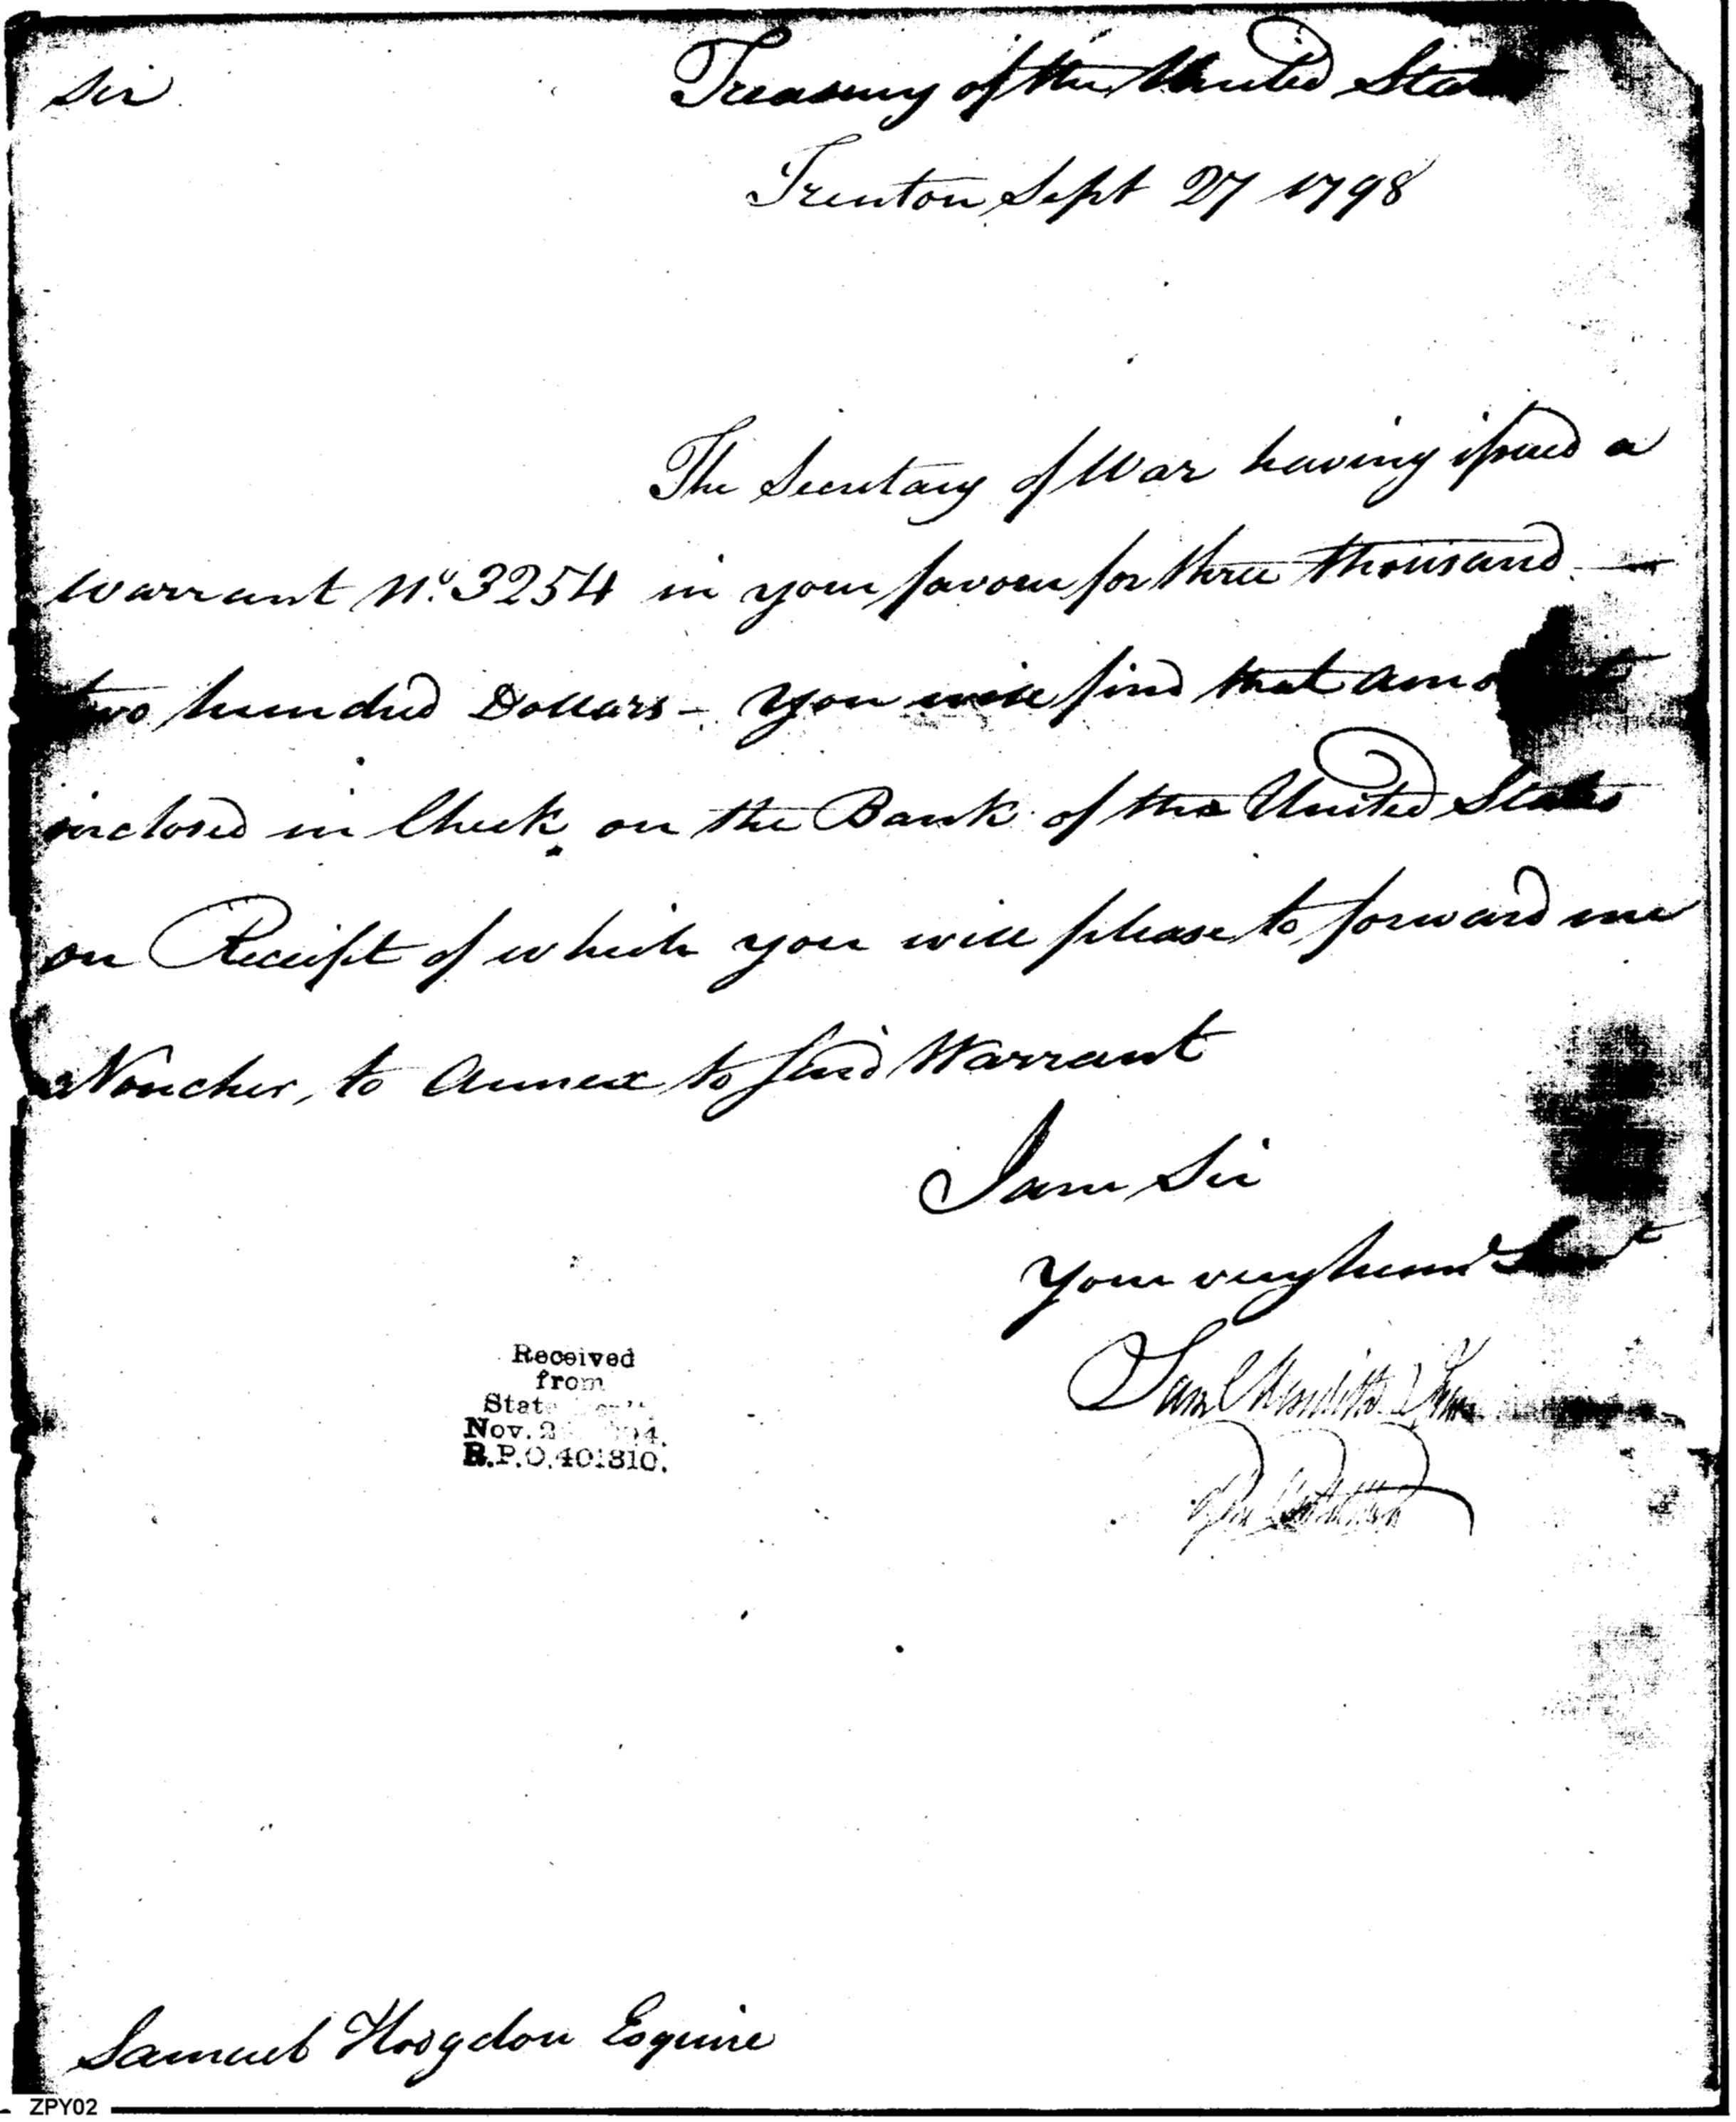 Sir
Treasury of the United States
Trenton Sept 27 1798
The Secretary of War having issued a
Warrant No. 3254 in your favour for three thousand
two hundred Dollars - You will find that amount
inclosed in Check on the Bank of the United States
on Receipt of which you will please to forward me
a Voucher, to Annex to said Warrant
I am Sir
Your very humle Servt
Saml Meredith
Received
from
State
Nov. 2
R.P.O. 401310.
Samuel Hodgdon Esquire
ZPY02